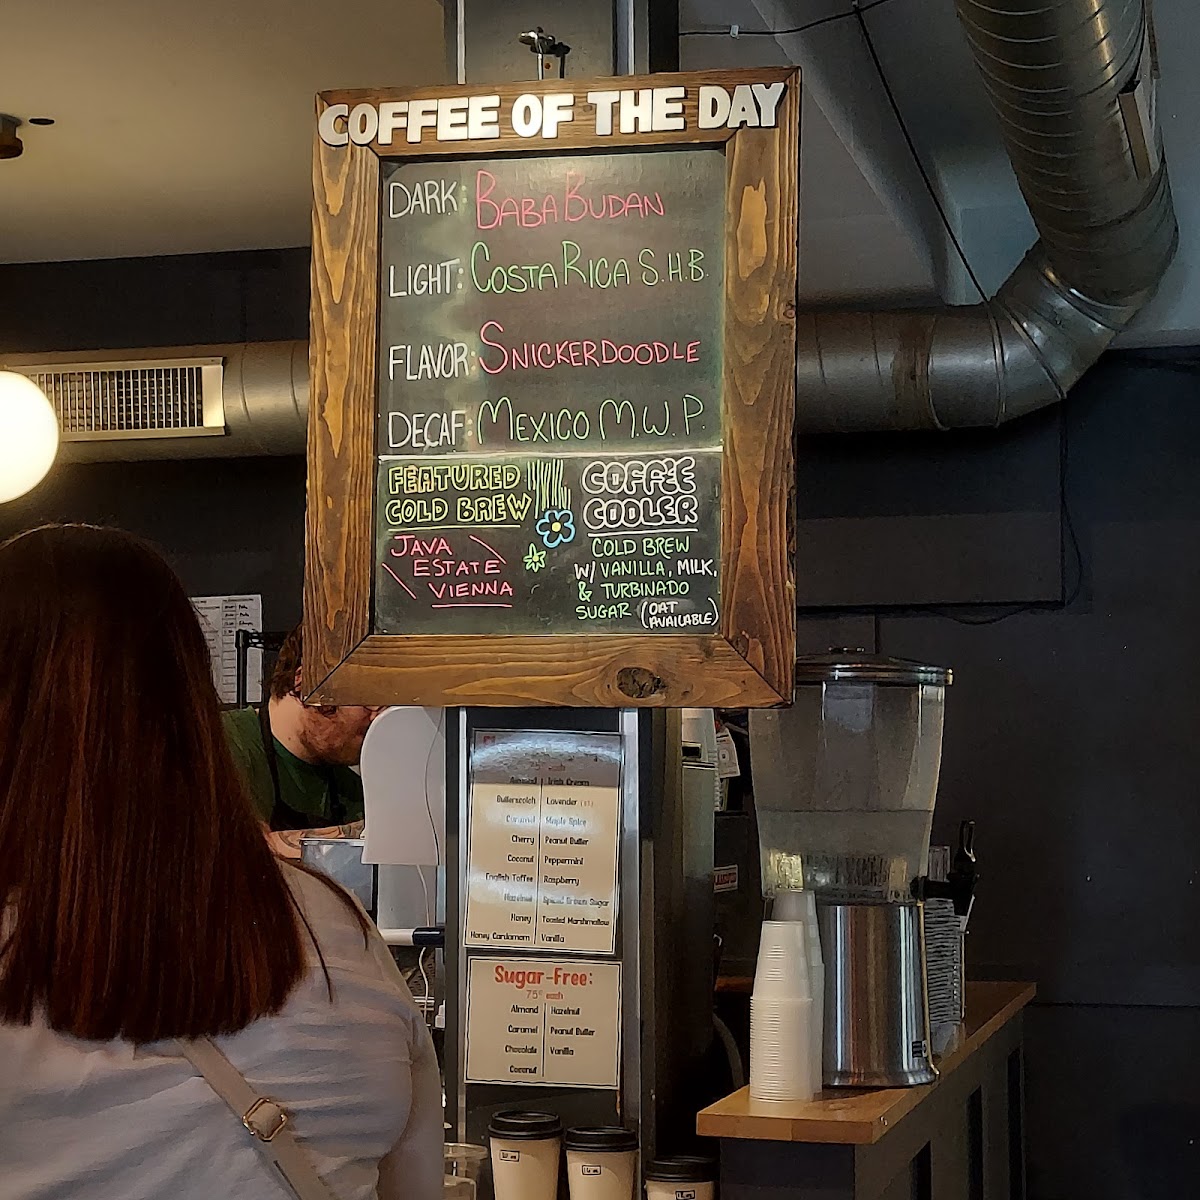 COFFEE OF THE DAY
DARK: BABA BUDAN
LIGHT: COSTA RICA S.H.B.
FLAVOR: SNICKERDOODLE
DECAF: MEXICO M.W.P.
FEATURED
COLD BREW
JAVA
ESTATE
VIENNA
COFFEE
COOLER
COLD BREW
W/ VANILLA, MILK,
& TURBINADO
SUGAR (OAT
AVAILABLE)
Almond Irish Cream
Butterscotch Lavender
Caramel Maple Spice
Cherry Peanut Butter
Coconut Peppermint
English Toffee Raspberry
Hazelnut Spiced Brown Sugar
Honey Toasted Marshmallow
Honey Cardamom Vanilla
Sugar-Free:
75¢ each
Almond Hazelnut
Caramel Peanut Butter
Chocolate Vanilla
Coconut